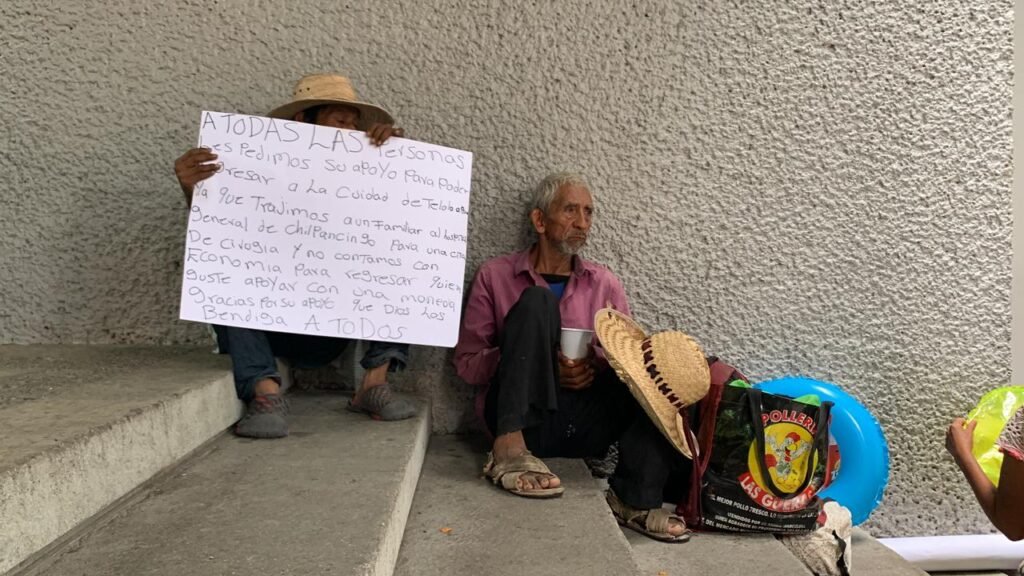 A TODAS LAS Personas
Les Pedimos su apoyo Para Poder
regresar a La Cuidad de Telolo
Ya que Trajimos a un Familiar al
General de ChilPancingo Para una cita
De cirugia Y no contamos con
Economia Para regresar quien
guste apoyar con una moneda
Gracias Por su apoyo que Dios Los
Bendiga A TODOS
POLLERI
LAS GÜERAS
EL MEJOR POLLO FRESCO, LO
DEL MERCADO